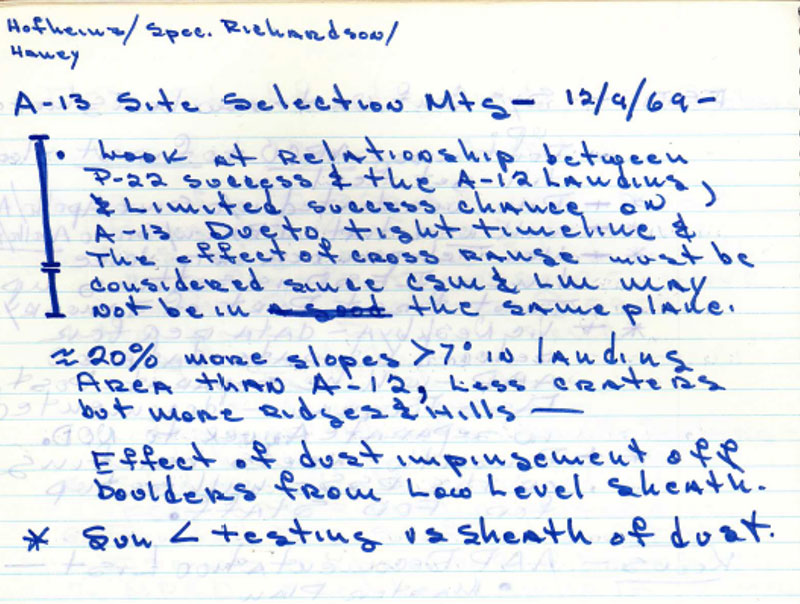 Hofheinz/Spec. Richardson/
Haney
A-13 Site Selection Mtg - 12/9/69 -
• Look at relationship between
P-22 success & the A-12 Landing,
& Limited success chance on
A-13 Due to tight timeline &
The effect of cross range must be
considered since CSM & LM may
not be in a good the same plane.
≈ 20% more slopes >7° in landing
Area than A-12, Less craters
but more Ridges & Hills —
Effect of dust impingement off
boulders from Low Level Sheath.
* Sun < testing vs sheath of dust.